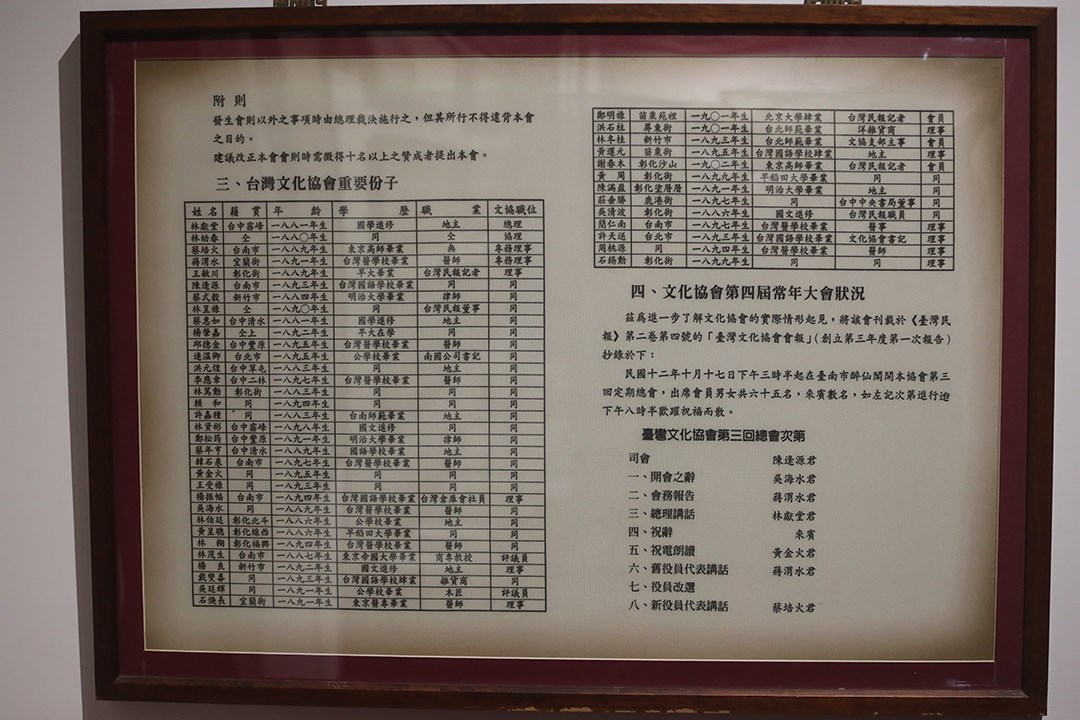 附 則
發生會則以外之事項時由總理裁決施行之，但其所行不得違背本會
之目的。
建議改正本會會則時需徵得十名以上之贊成者提出本會。
三、台灣文化協會重要份子
姓名 籍貫 年齡 學歷 職業 文協職位
林獻堂 台中霧峰 一八八一年生 國學進修 地主 總理
林幼春 仝 一八八〇年生 同 仝 協理
蔡培火 台南市 一八八九年生 東京高師畢業 無 專務理事
蔣渭水 宜蘭街 一八九一年生 台灣醫學校畢業 醫師 專務理事
王敏川 彰化街 一八八九年生 早大畢業 台灣民報記者 理事
陳逢源 台南市 一八九三年生 台灣國語學校畢業 同 同
蔡式穀 新竹市 一八八四年生 明治大學畢業 律師 同
林呈祿 仝 一八九〇年生 同 台灣民報董事 同
蔡惠如 台中清水 一八八一年生 國學進修 地主 同
楊肇嘉 仝上 一八九二年生 早大在學 同 同
邱德金 台中豐原 一八九五年生 台灣醫學校畢業 醫師 同
連溫卿 台北市 一八九五年生 公學校畢業 南國公司書記 同
洪元煌 台中草屯 一八八三年生 同 地主 同
李應章 台中二林 一八九七年生 台灣醫學校畢業 醫師 同
林篤勳 彰化街 一八八三年生 同 同 同
賴 和 同 一八九四年生 同 同 同
許嘉種 同 一八八三年生 台南師範畢業 地主 同
林資彬 台中霧峰 一八九八年生 國文進修 同 同
鄭松筠 台中豐原 一八九一年生 明治大學畢業 律師 同
蔡年亨 台中清水 一八八九年生 國語學校畢業 地主 同
韓石泉 台南市 一八九七年生 台灣醫學校畢業 醫師 同
黃金火 同 一八九五年生 同 同 同
王受祿 同 一八九三年生 同 同 同
楊振福 台南市 一八九四年生 台灣國語學校畢業 台灣倉庫會社員 理事
吳海水 同 一八九九年生 台灣醫學校畢業 醫師 同
林伯廷 彰化北斗 一八八六年生 公學校畢業 地主 同
黃呈聰 彰化線西 一八八六年生 早稻田大學畢業 同 同
林 糊 彰化福興 一八九四年生 台灣醫學校畢業 醫師 同
林茂生 台南市 一八八七年生 東京帝國大學畢業 商專教授 評議員
楊 良 新竹市 一八九二年生 國文進修 地主 理事
戴雙喜 同 一八九三年生 台灣國語學校肄業 雜貨商 同
吳廷輝 同 一八九一年生 公學校畢業 木匠 評議員
石煥長 宜蘭街 一八九一年生 東京醫專畢業 醫師 理事
鄭明祿 苗栗苑裡 一九〇一年生 北京大學肄業 台灣民報記者 會員
洪石柱 屏東街 一九〇一年生 台北師範畢業 洋雜貨商 理事
林冬桂 新竹市 一八九九年生 台北師範畢業 文協支部主事 會員
黃運元 苗栗街 一八九五年生 台灣國語學校肄業 地主 理事
謝春木 彰化沙山 一九〇二年生 東京高師畢業 台灣民報記者 會員
黃 周 彰化街 一八九九年生 早稻田大學畢業 同 同
陳滿盈 彰化塗厝厝 一八九六年生 明治大學畢業 地主 同
莊垂勝 鹿港街 一八九七年生 同 台中中央書局董事 同
吳清波 彰化街 一八八六年生 國文進修 台灣民報職員 同
簡仁南 台南市 一八九七年生 台灣醫學校畢業 醫事 理事
許天送 台北市 一八九三年生 台灣國語學校畢業 文化協會書記 理事
周桃源 同 一八九四年生 台灣醫學校畢業 醫師 同
石錫勳 彰化街 一八九九年生 同 同 理事
四、文化協會第四屆常年大會狀況
茲為進一步了解文化協會的實際情形起見，將該會刊載於《臺灣民
報》第二卷第四號的「臺灣文化協會會報」（創立第三年度第一次報告）
抄錄於下：
民國十二年十月十七日下午三時半起在臺南市醉仙閣開本協會第三
回定期總會，出席會員男女共六十五名，來賓數名，如左記次第進行迨
下午八時半歡躍祝福而散。
臺灣文化協會第三回總會次第
司會 陳逢源君
一、開會之辭 吳海水君
二、會務報告 蔣渭水君
三、總理講話 林獻堂君
四、祝辭 來賓
五、祝電朗讀 黃金火君
六、舊役員代表講話 蔣渭水君
七、役員改選
八、新役員代表講話 蔡培火君